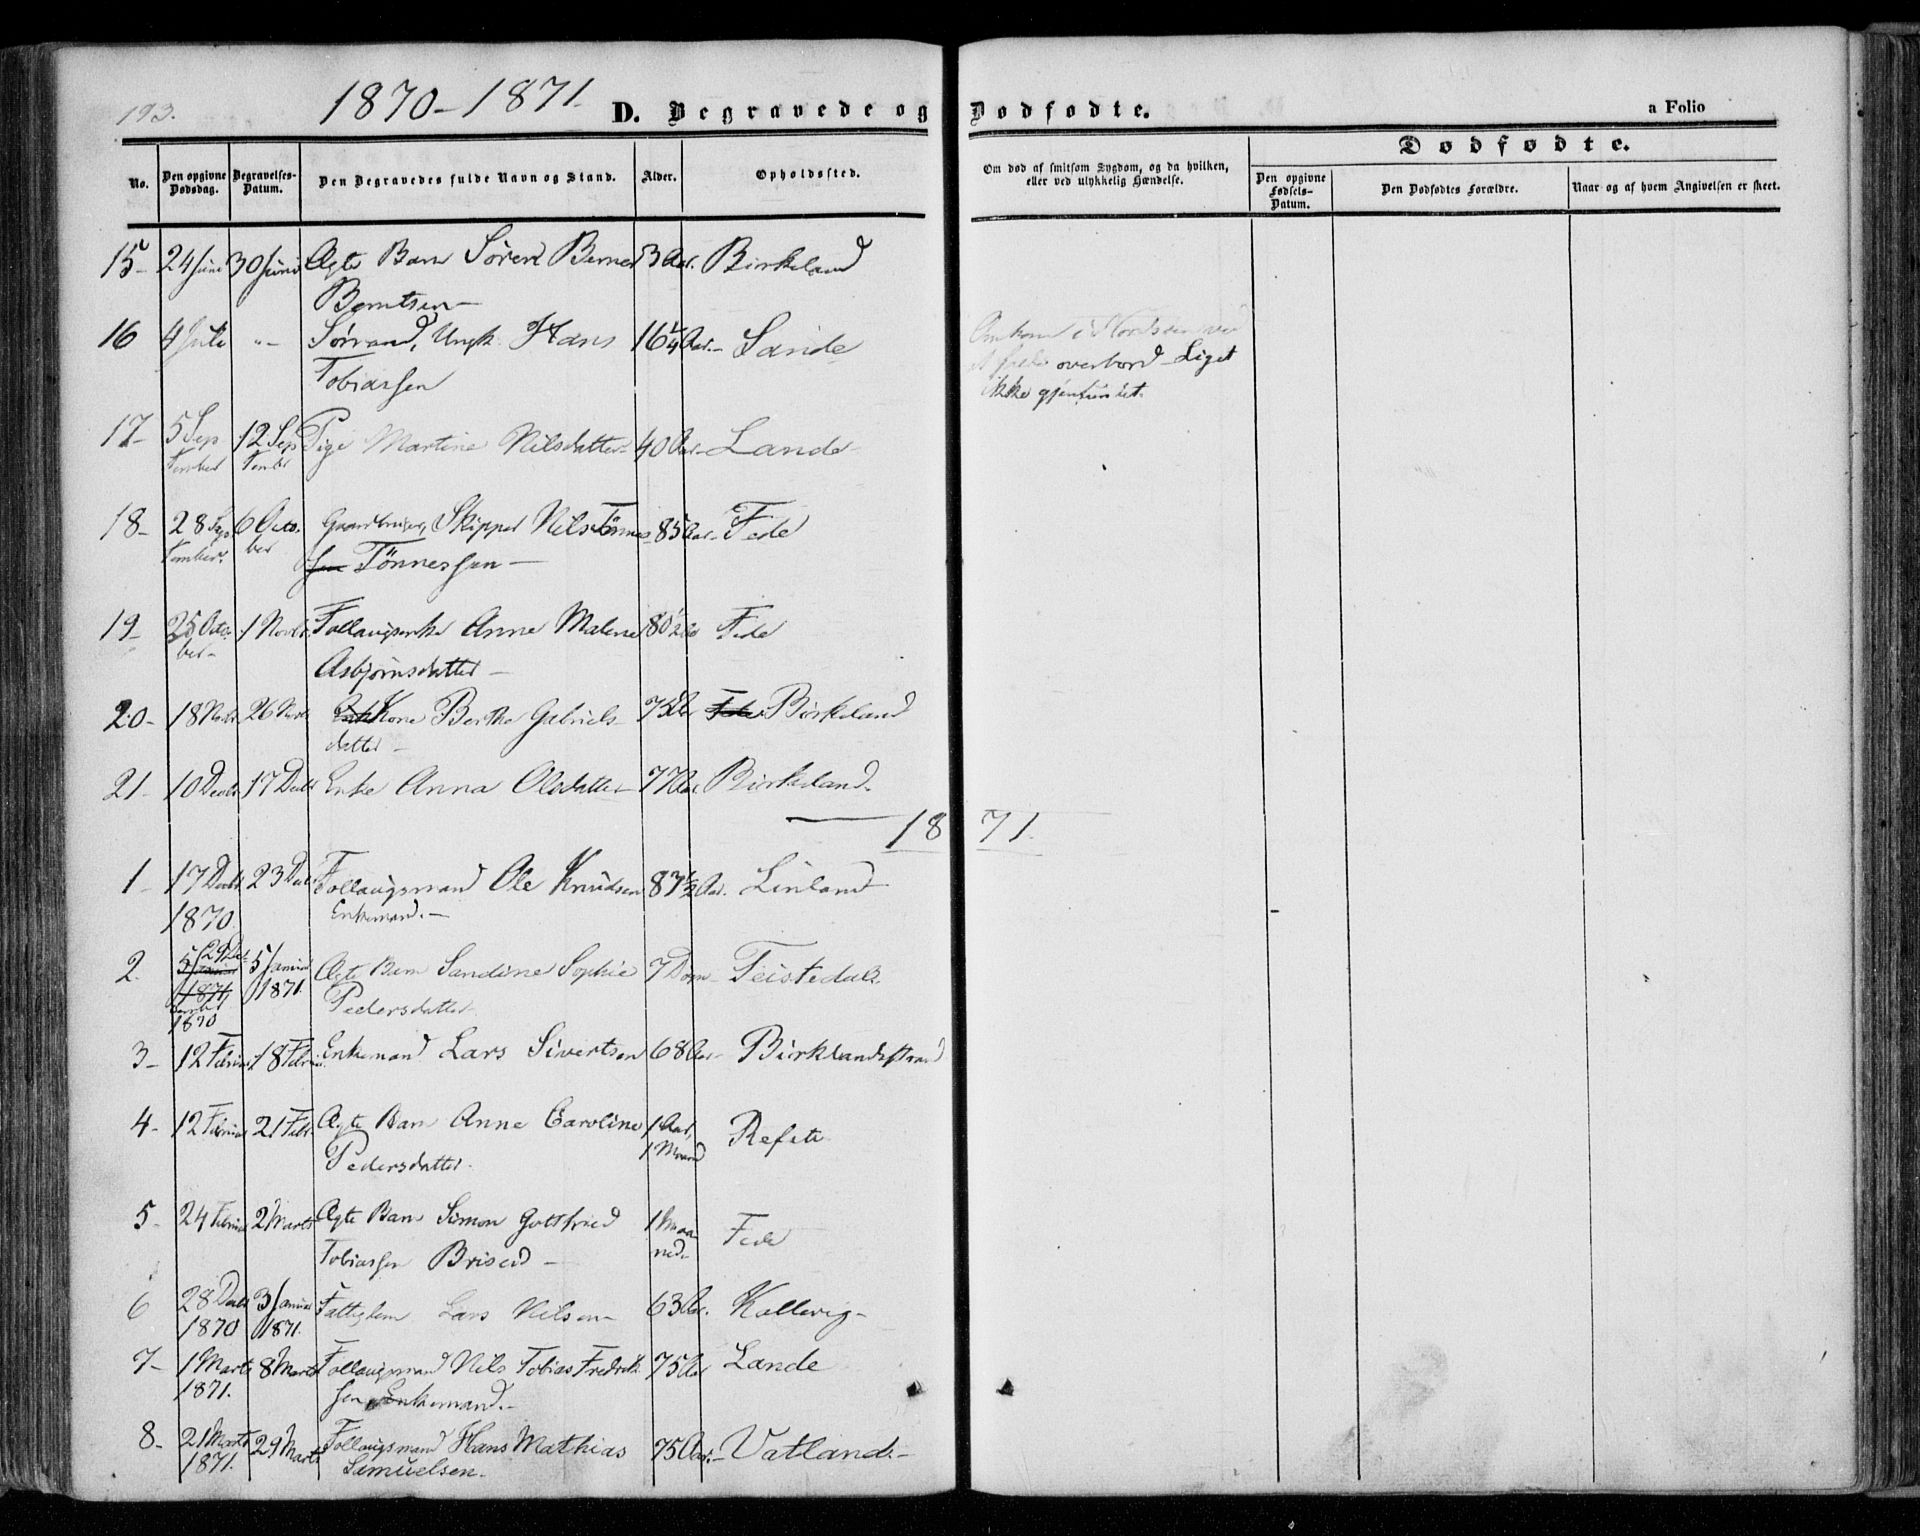 193.
1870-1871.
D. Begravede og Dødfødte.
a Folio
No.
Den opgivne Dødsdag.
Begravelses-Datum.
Den Begravedes fulde Navn og Stand.
Alder.
Opholdssted.
Om død af smitsom Sygdom, og da hvilken,
eller ved ulykkelig Hændelse.
Dødfødte.
Den opgivne Fødsels-Datum.
Den Dødfødtes Forældre.
Naar og af hvem Angivelsen er skeet.
15- 24 Juni 30 Juni Ægte Barn Søren Berner 3 Aar. Birkeland
Berntsen-
16 4 Juli "- Sørmand, Ungk. Hans 16 1/4 Aar- Sande
Tobiassen
Omkom i Nordsøen ved
at falde overbord- Liget
ikke gjenfundet.
17- 5 Sep 12 Sep Pige Martine Nilsdatter- 40 Aar- Lande-
tember tembr
18- 28 Sep 6 Octo- Gaardbruger, Skipper Nils Tönnes 85 Aar- Fede
tember. ber
sen Tönnessen-
19- 25 Octo- 1 Novbr. Follaugsenke Anne Malene 80 1/2 Aar Fede
ber-
Asbjörnsdatter-
20- 18 Novbr 26 Novbr Enke Kone Berthe Gabriels- 73 Aar Fede Birkeland
datter-
21- 10 Decbr 17 Decbr Enke Anna Olsdatter- 77 Aar. Birkeland.
1871.
1- 17 Decbr 23 Decbr Follaugsmand Ole Knudsen 87 1/2 Aar. Linland-
1870 Enkemand.-
2. 29 De- 5 Januar Ægte Barn Sandine Sophie 7 Dage- Feistedal.
5 Januar
1871 1871. Pedersdatter
cember
1870
3- 12 Februar 18 Februar Enkemand Lars Sivertsen 68 Aar- Birklandsstrand
4- 12 Februar 21 Febr. Ægte Barn Anne Caroline 1 Aar, Refste
Pedersdatter. 1 Maaned
5- 24 Februar 2 Marts Ægte Barn Simon Gottfried 1 Maa- Fede
Tobiassen Briseid- ned-
6 28 Decbr 3 Januar Fattiglem Lars Nilsen- 63 Aar. Kallevig-
1870 1871.
7- 1 Marts 8 Marts Follaugsmand Nils Tobias Fredrik 75 Aar Lande
1871. sen Enkemand.-
8- 21 Marts 29 Marts Follaugsmand Hans Mathias 75 Aar.- Vatland.-
1871. Samuelsen-